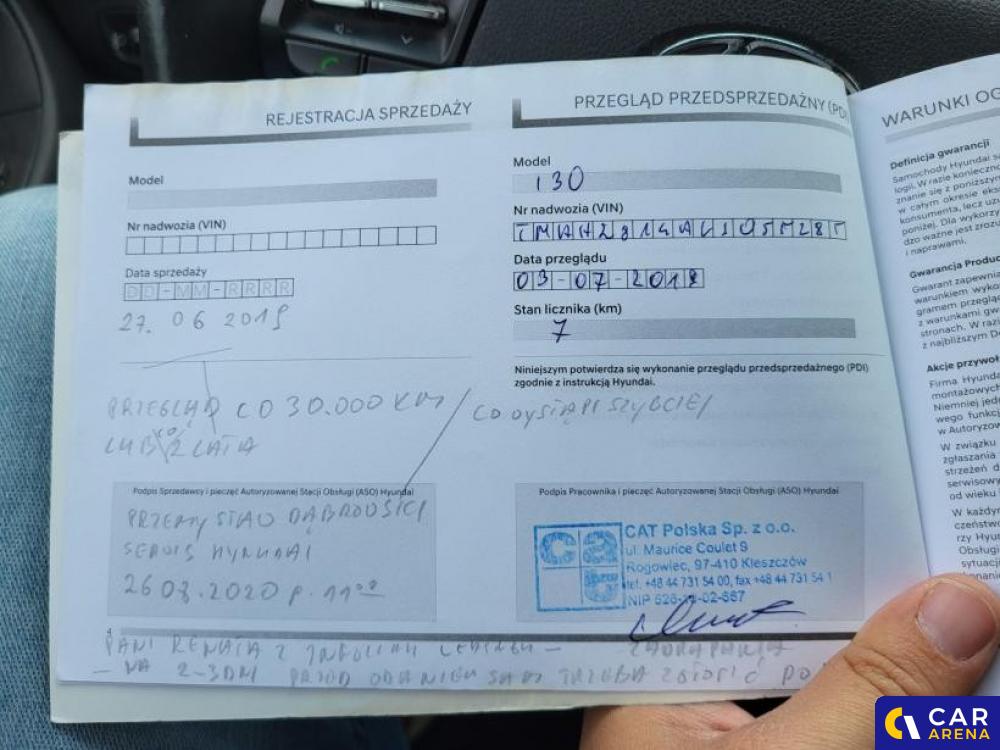 REJESTRACJA SPRZEDAŻY
Model
Nr nadwozia (VIN)
Data sprzedaży
DD-MM-RRRR
27. 06 2019
PRZEGLĄD CO 30.000 KM / CO WYSTĄPI SZYBCIEJ
LUB CO 2 LATA
Podpis Sprzedawcy i pieczęć Autoryzowanej Stacji Obsługi (ASO) Hyundai
PRZEMYSŁAW DĄBROWSKI
SERWIS HYUNDAI
26 08.2020 p. 11⁰⁰
PANI RENATA Z
— NA 2-3 DNI PRZED TRZEBA ZGŁOSIĆ PO
PRZEGLĄD PRZEDSPRZEDAŻNY (PDI
Model
i30
Nr nadwozia (VIN)
Data przeglądu
03-07-2018
Stan licznika (km)
7
Niniejszym potwierdza się wykonanie przeglądu przedsprzedażnego (PDI)
zgodnie z instrukcją Hyundai.
Podpis Pracownika i pieczęć Autoryzowanej Stacji Obsługi (ASO) Hyundai
CAT Polska Sp. z o.o.
ul. Maurice Coulet 9
Rogowiec, 97-410 Kleszczów
tel. +48 44 731 54 00, fax +48 44 731 54 1
WARUNKI OG
Definicja gwarancji
Samochody Hyundai są
logii. W razie koniecznoś
znanie się z poniższym
w całym okresie eks
konsumenta, lecz uz
poniżej. Dla wykorzy
dzo ważne jest zrozu
i naprawami.
Gwarancja Produc
Gwarant zapewnia
warunkiem wykon
gramem przeglą
z warunkami gw
stronach. W razi
z najbliższym D
Akcje przywoł
Firma Hyunda
montażowych
Niemniej jed
wego funkcj
w Autoryzow
W związku
zgłaszania
strzeżeń d
serwisowy
od wieku
W każdym
czeństwo
rzy Hyun
Obsługi
sytuacje
CAR
ARENA